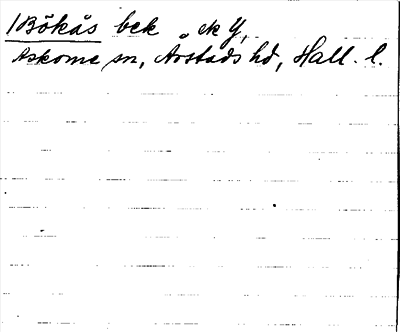 1 Bökås bek
Askome sn, Årstads hd, Hall. l.